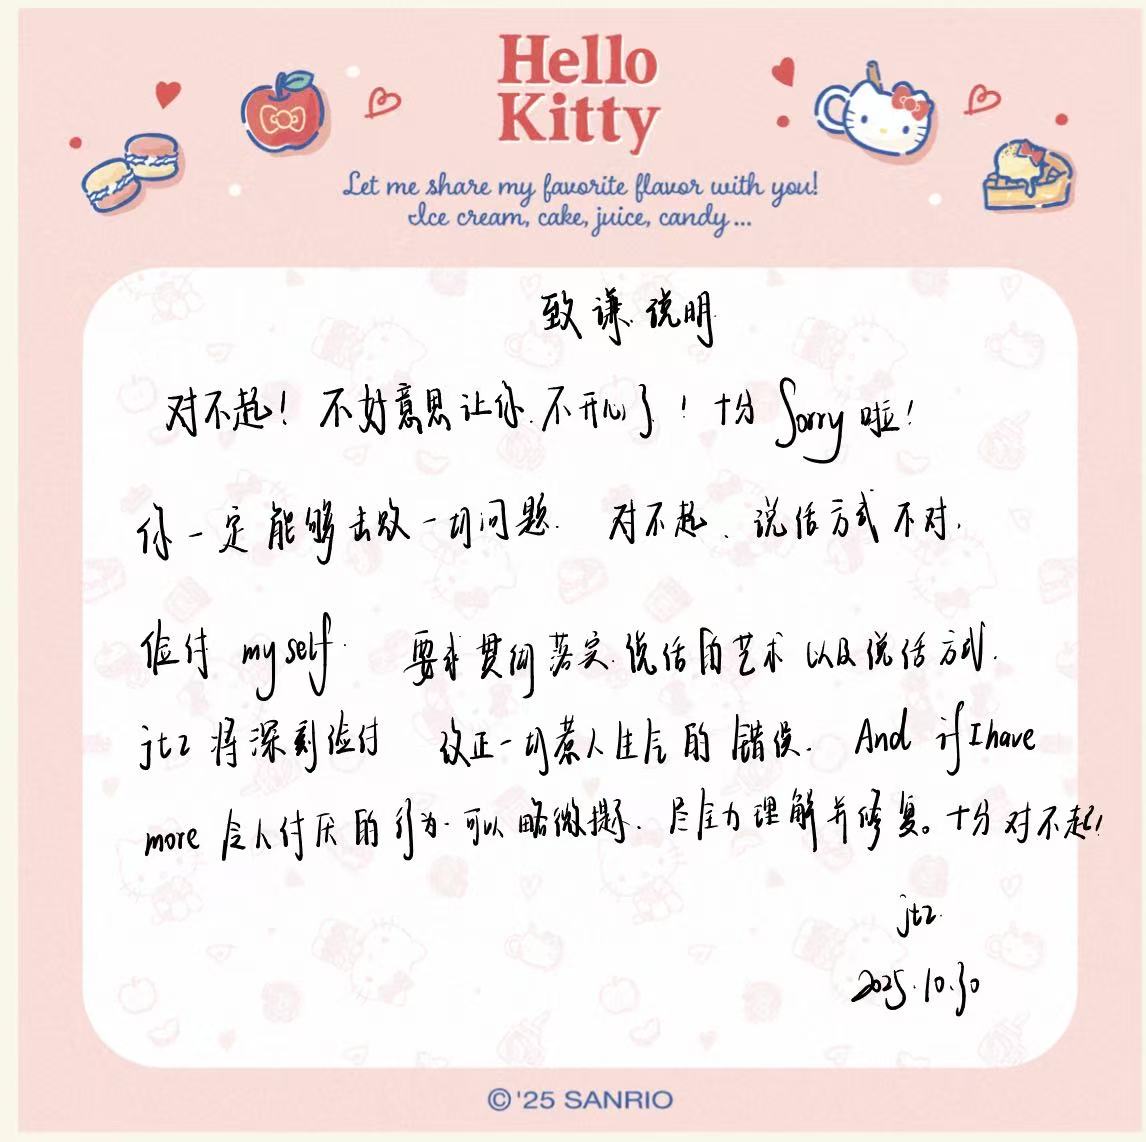 Hello
Kitty
Let me share my favorite flavor with you!
Ice cream, cake, juice, candy...
致谦说明
对不起！不好意思让你不开心了！十分Sorry啦！
你一定能够击败一切问题. 对不起、说话方式不对.
检讨 myself. 要求贯彻落实说话的艺术以及说话方式.
jtz 将深刻检讨 改正一切惹人生气的错误. And if I have
more 令人讨厌的行为.可以略微提示.尽全力理解并修复。十分对不起！
jtz.
2025.10.30
©'25 SANRIO